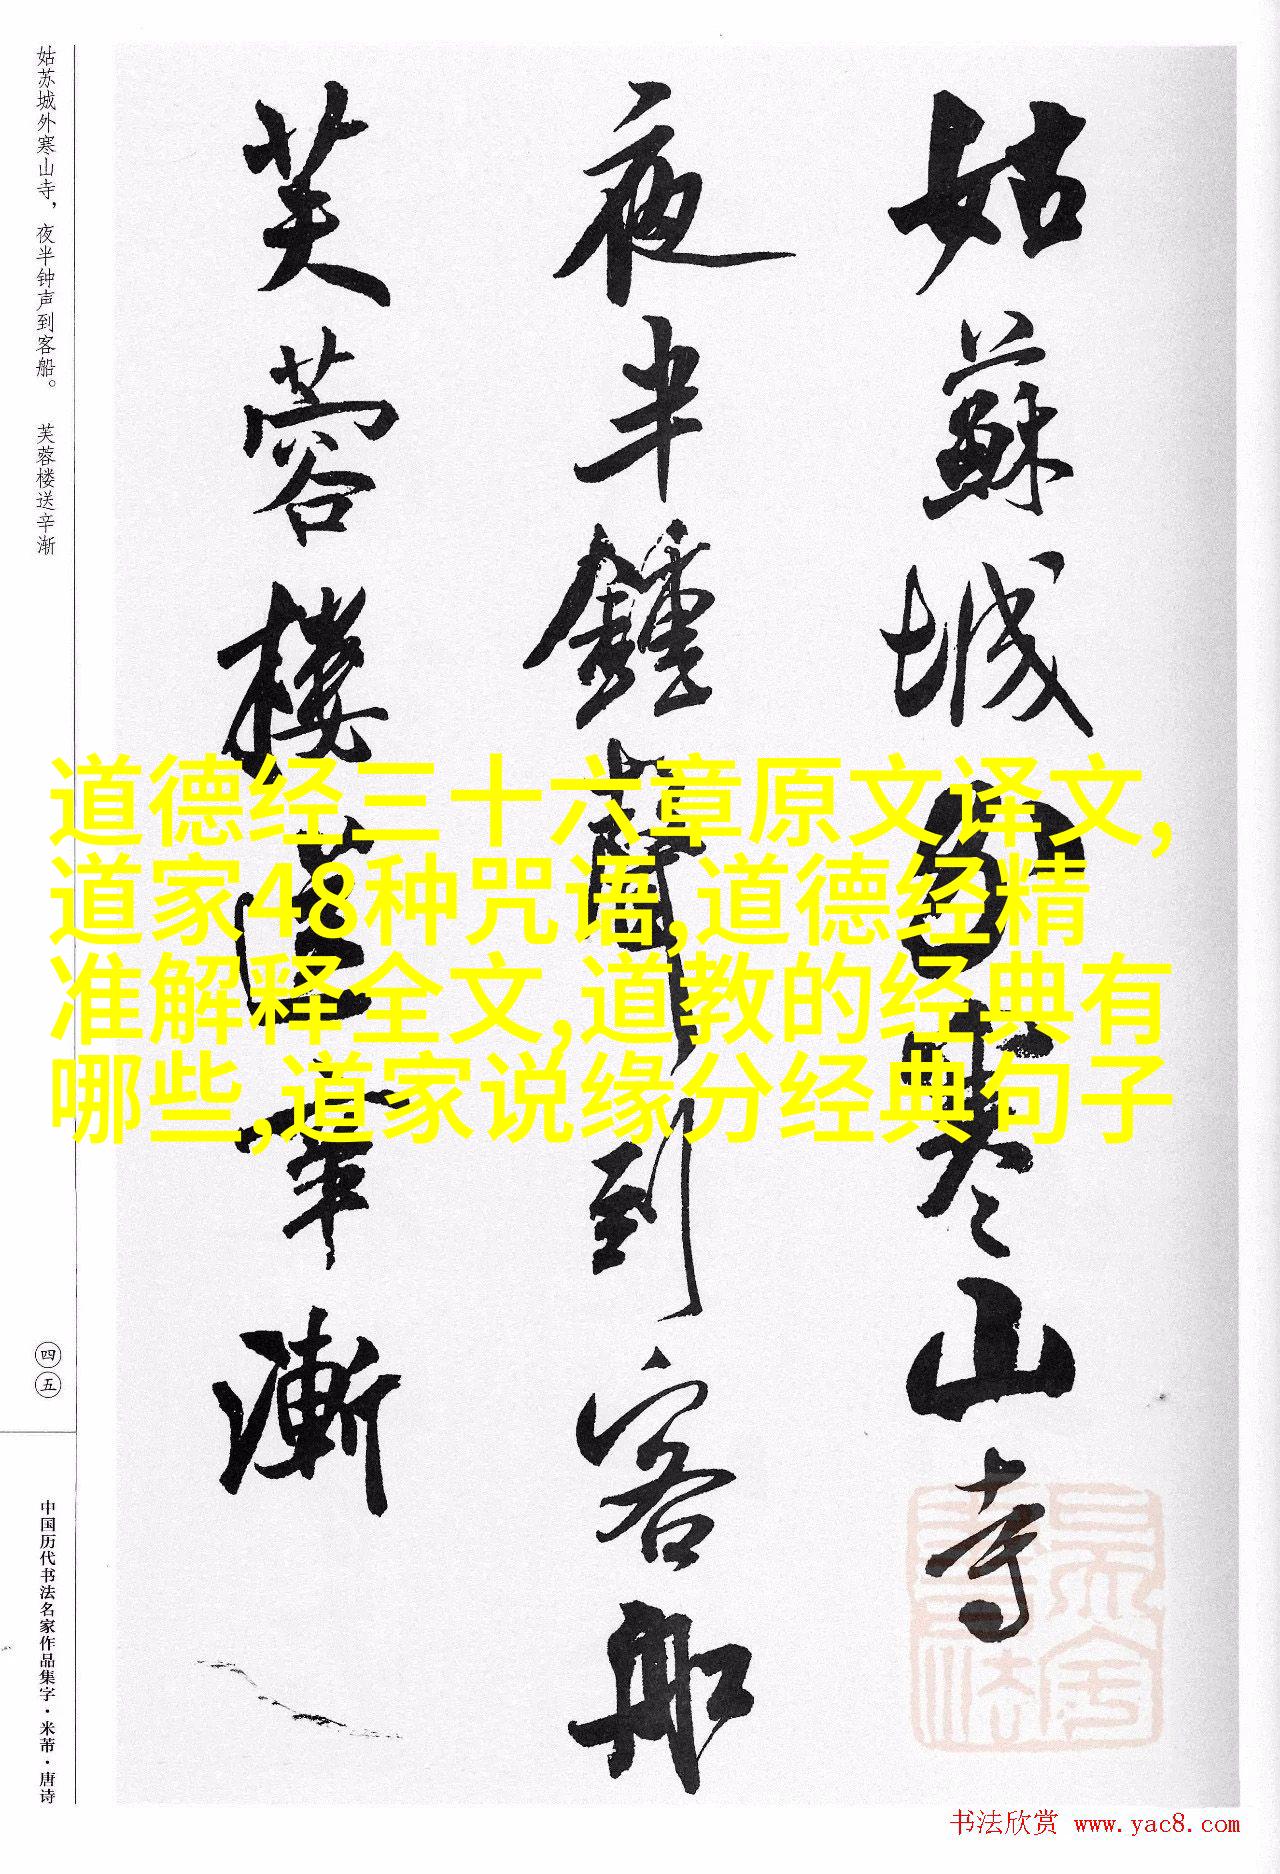 姑蘇城外寒山寺
夜半鍾聲到客船
芙蓉樓送辛漸
姑苏城外寒山寺，夜半钟声到客船。 芙蓉楼送辛渐
四五
中国历代书法名家作品集字·米芾·唐诗
道德经三十六章原文译文,
道家48种咒语,道德经精
准解释全文,道教的经典有
哪些,道家说缘分经典句子
书法欣赏 www.yac8.com